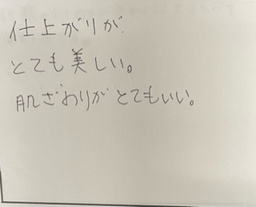 仕上がりが
とても美しい。
肌ざわりがとてもいい。